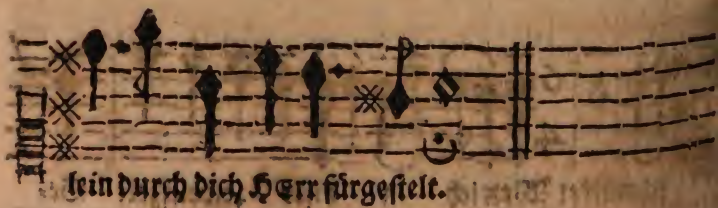 lein durch dich HErr fürgestelt.